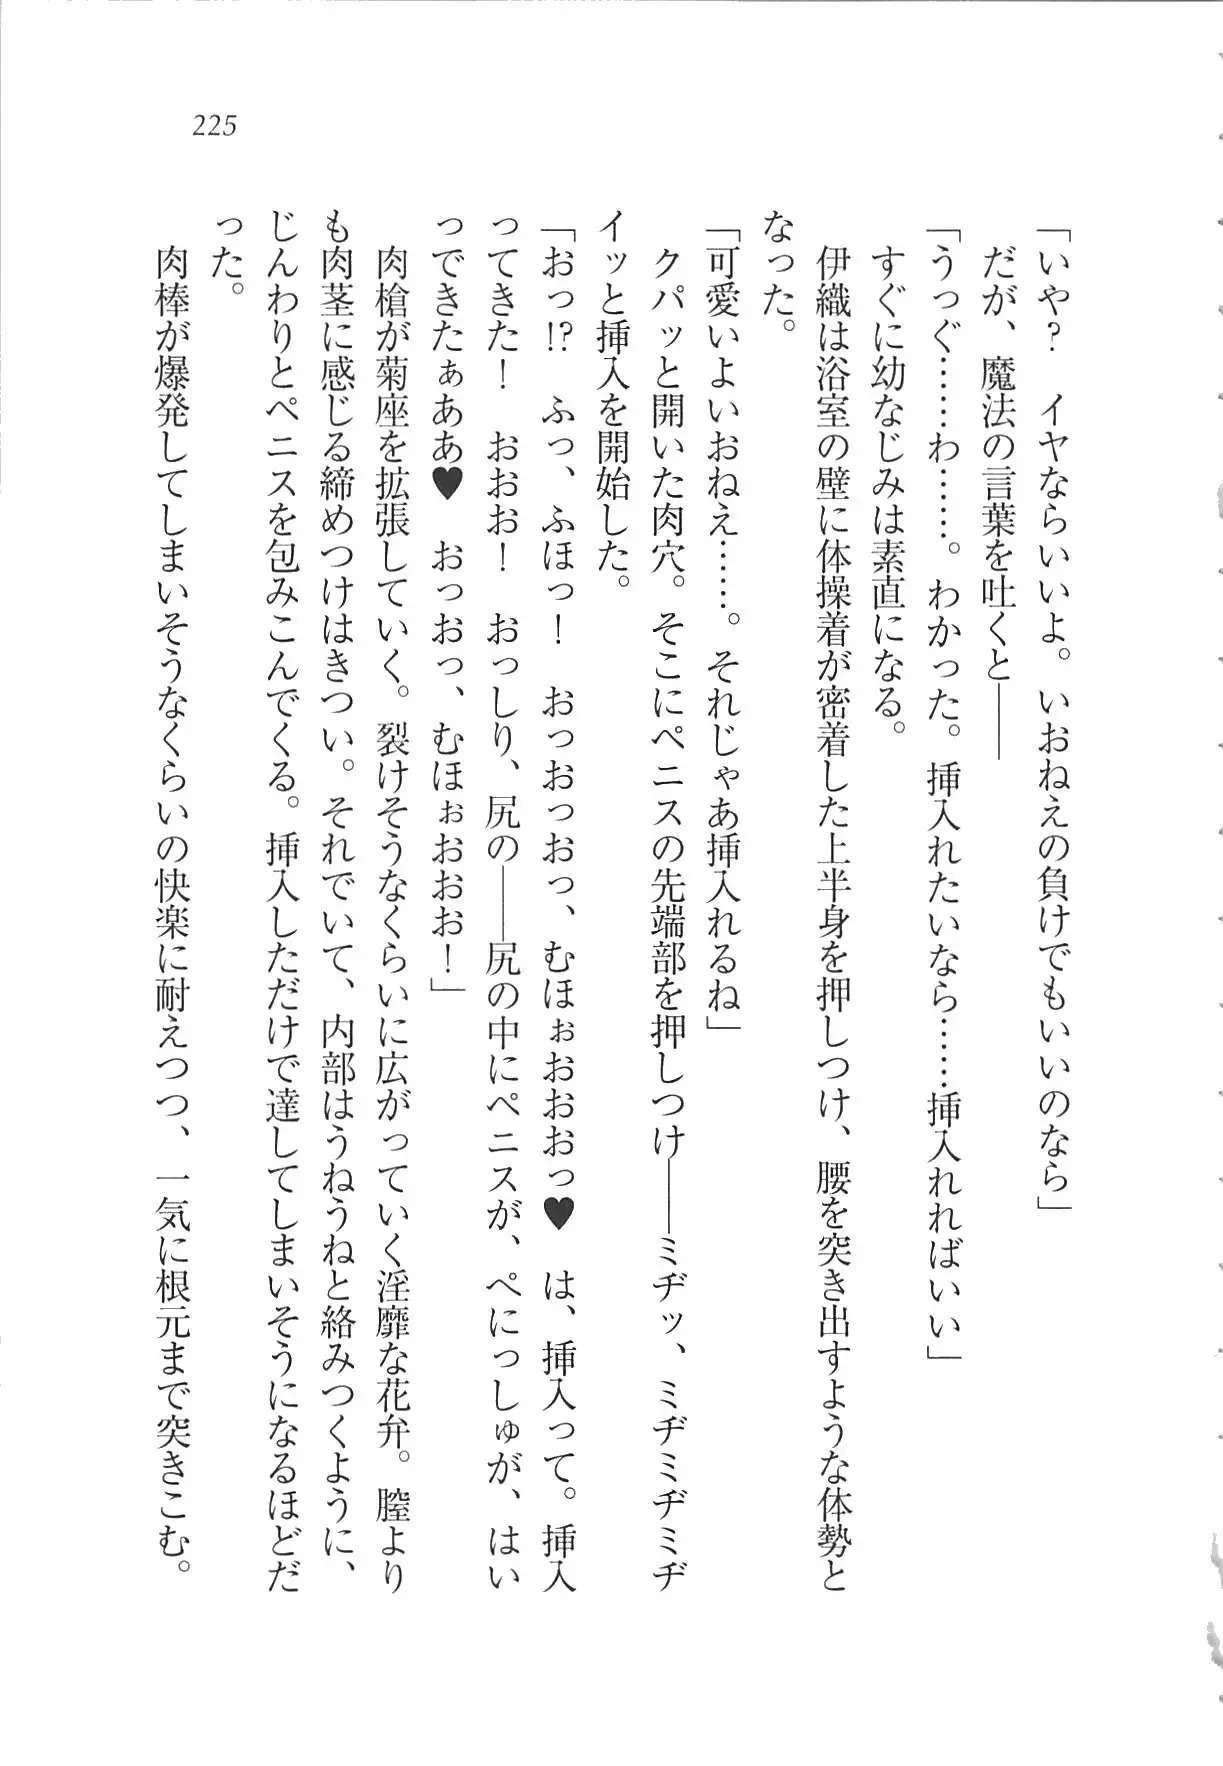 225
「いや？　イヤならいいよ。いおねえの負けでもいいのなら」
だが、魔法の言葉を吐くと――
「うっぐ……わ……。わかった。挿入れたいなら……挿入れればいい」
すぐに幼なじみは素直になる。
伊織は浴室の壁に体操着が密着した上半身を押しつけ、腰を突き出すような体勢と
なった。
「可愛いよいおねえ……。それじゃあ挿入れるね」
クパッと開いた肉穴。そこにペニスの先端部を押しつけ――ミヂッ、ミヂミヂミヂ
イッと挿入を開始した。
「おっ!?　ふっ、ふほっ！　おっおっおっ、むほぉおおおっ♥　は、挿入って。挿入
ってきた！　おおお！　おっしり、尻の――尻の中にペニスが、ぺにっしゅが、はい
っできたぁああ♥　おっおっ、むほぉおおお！」
肉槍が菊座を拡張していく。裂けそうなくらいに広がっていく淫靡な花弁。膣より
も肉茎に感じる締めつけはきつい。それでいて、内部はうねうねと絡みつくように、
じんわりとペニスを包みこんでくる。挿入しただけで達してしまいそうになるほどだ
った。
肉棒が爆発してしまいそうなくらいの快楽に耐えつつ、一気に根元まで突きこむ。